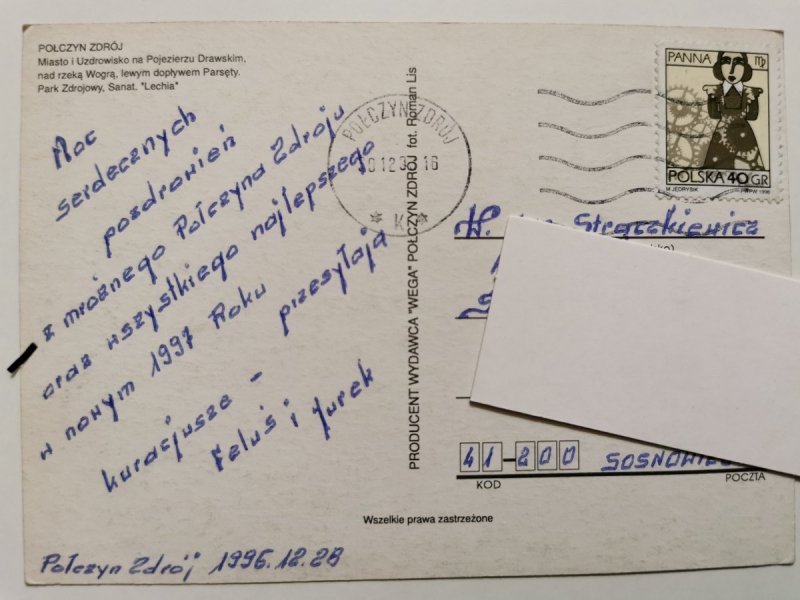 POŁCZYN ZDRÓJ
Miasto i Uzdrowisko na Pojezierzu Drawskim,
nad rzeką Wogrą, lewym dopływem Parsęty.
Park Zdrojowy, Sanat. "Lechia"
Moc
serdecznych
pozdrowień
z mroźnego Połczyna Zdroju
oraz wszystkiego najlepszego
w nowym 1997 Roku przesyłają
kuracjusze –
i Jurek
Połczyn Zdrój 1996.12.28
PRODUCENT WYDAWCA "WEGA" POŁCZYN ZDRÓJ fot. Roman Lis
POŁCZYN ZDRÓJ
16
* K *
PANNA
POLSKA 40 GR
M JEDRYSIK PWPW 1996
W.
41-200
KOD POCZTA
Wszelkie prawa zastrzeżone